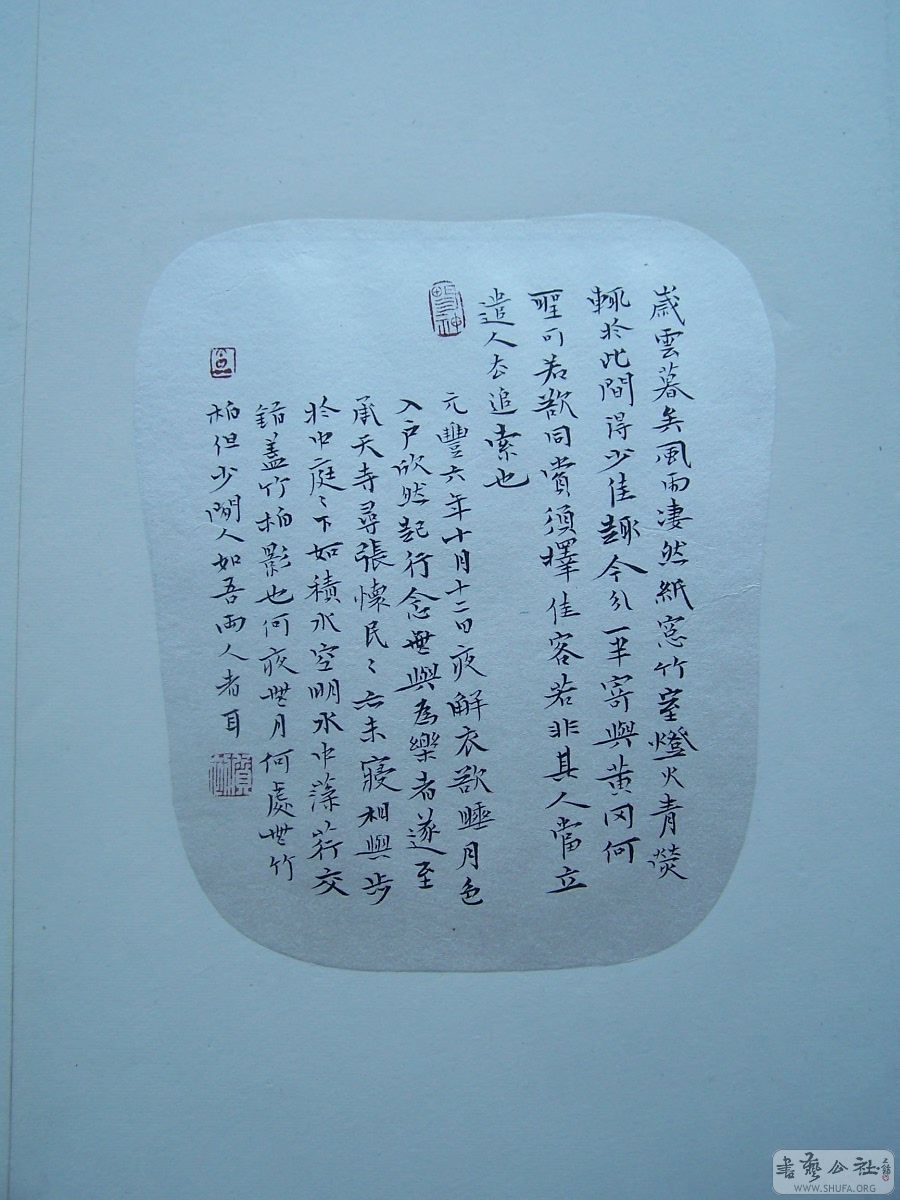 歲雲暮矣風雨凄然紙窓竹室燈火青熒
輒於此間得少佳趣今分一半寄與黃冈何
聖可若欲同賞須擇佳客若非其人當立
遣人去追索也
元豐六年十月十二日夜解衣欲睡月色
入戶欣然起行念無與為樂者遂至
承天寺尋張懷民〻亦未寢相與步
於中庭〻下如積水空明水中藻荇交
錯蓋竹柏影也何夜無月何處無竹
柏但少閒人如吾兩人者耳
書藝公社
WWW.SHUFA.ORG